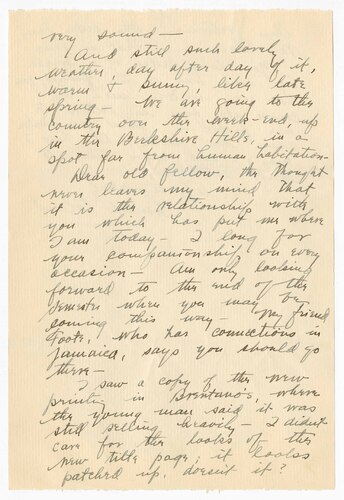 very sound —
And still such lovely
weather, day after day of it,
warm & sunny, like late
spring — We are going to the
country over the week-end, up
in the Berkshire Hills, in a
spot far from human habitation —
Dear old fellow, the thought
never leaves my mind that
it is the relationship with
you which has put me where
I am today — I long for
your companionship on every
occasion — Am only looking
forward to the end of the
semester when you may be
coming this way — My friend
Foote, who has connections in
Jamaica, says you should go
there —
I saw a copy of the new
printing in Brentano's, where
the young man said it was
still selling bravely — I didn't
care for the looks of the
new title page; it looks
patched up, doesn't it?